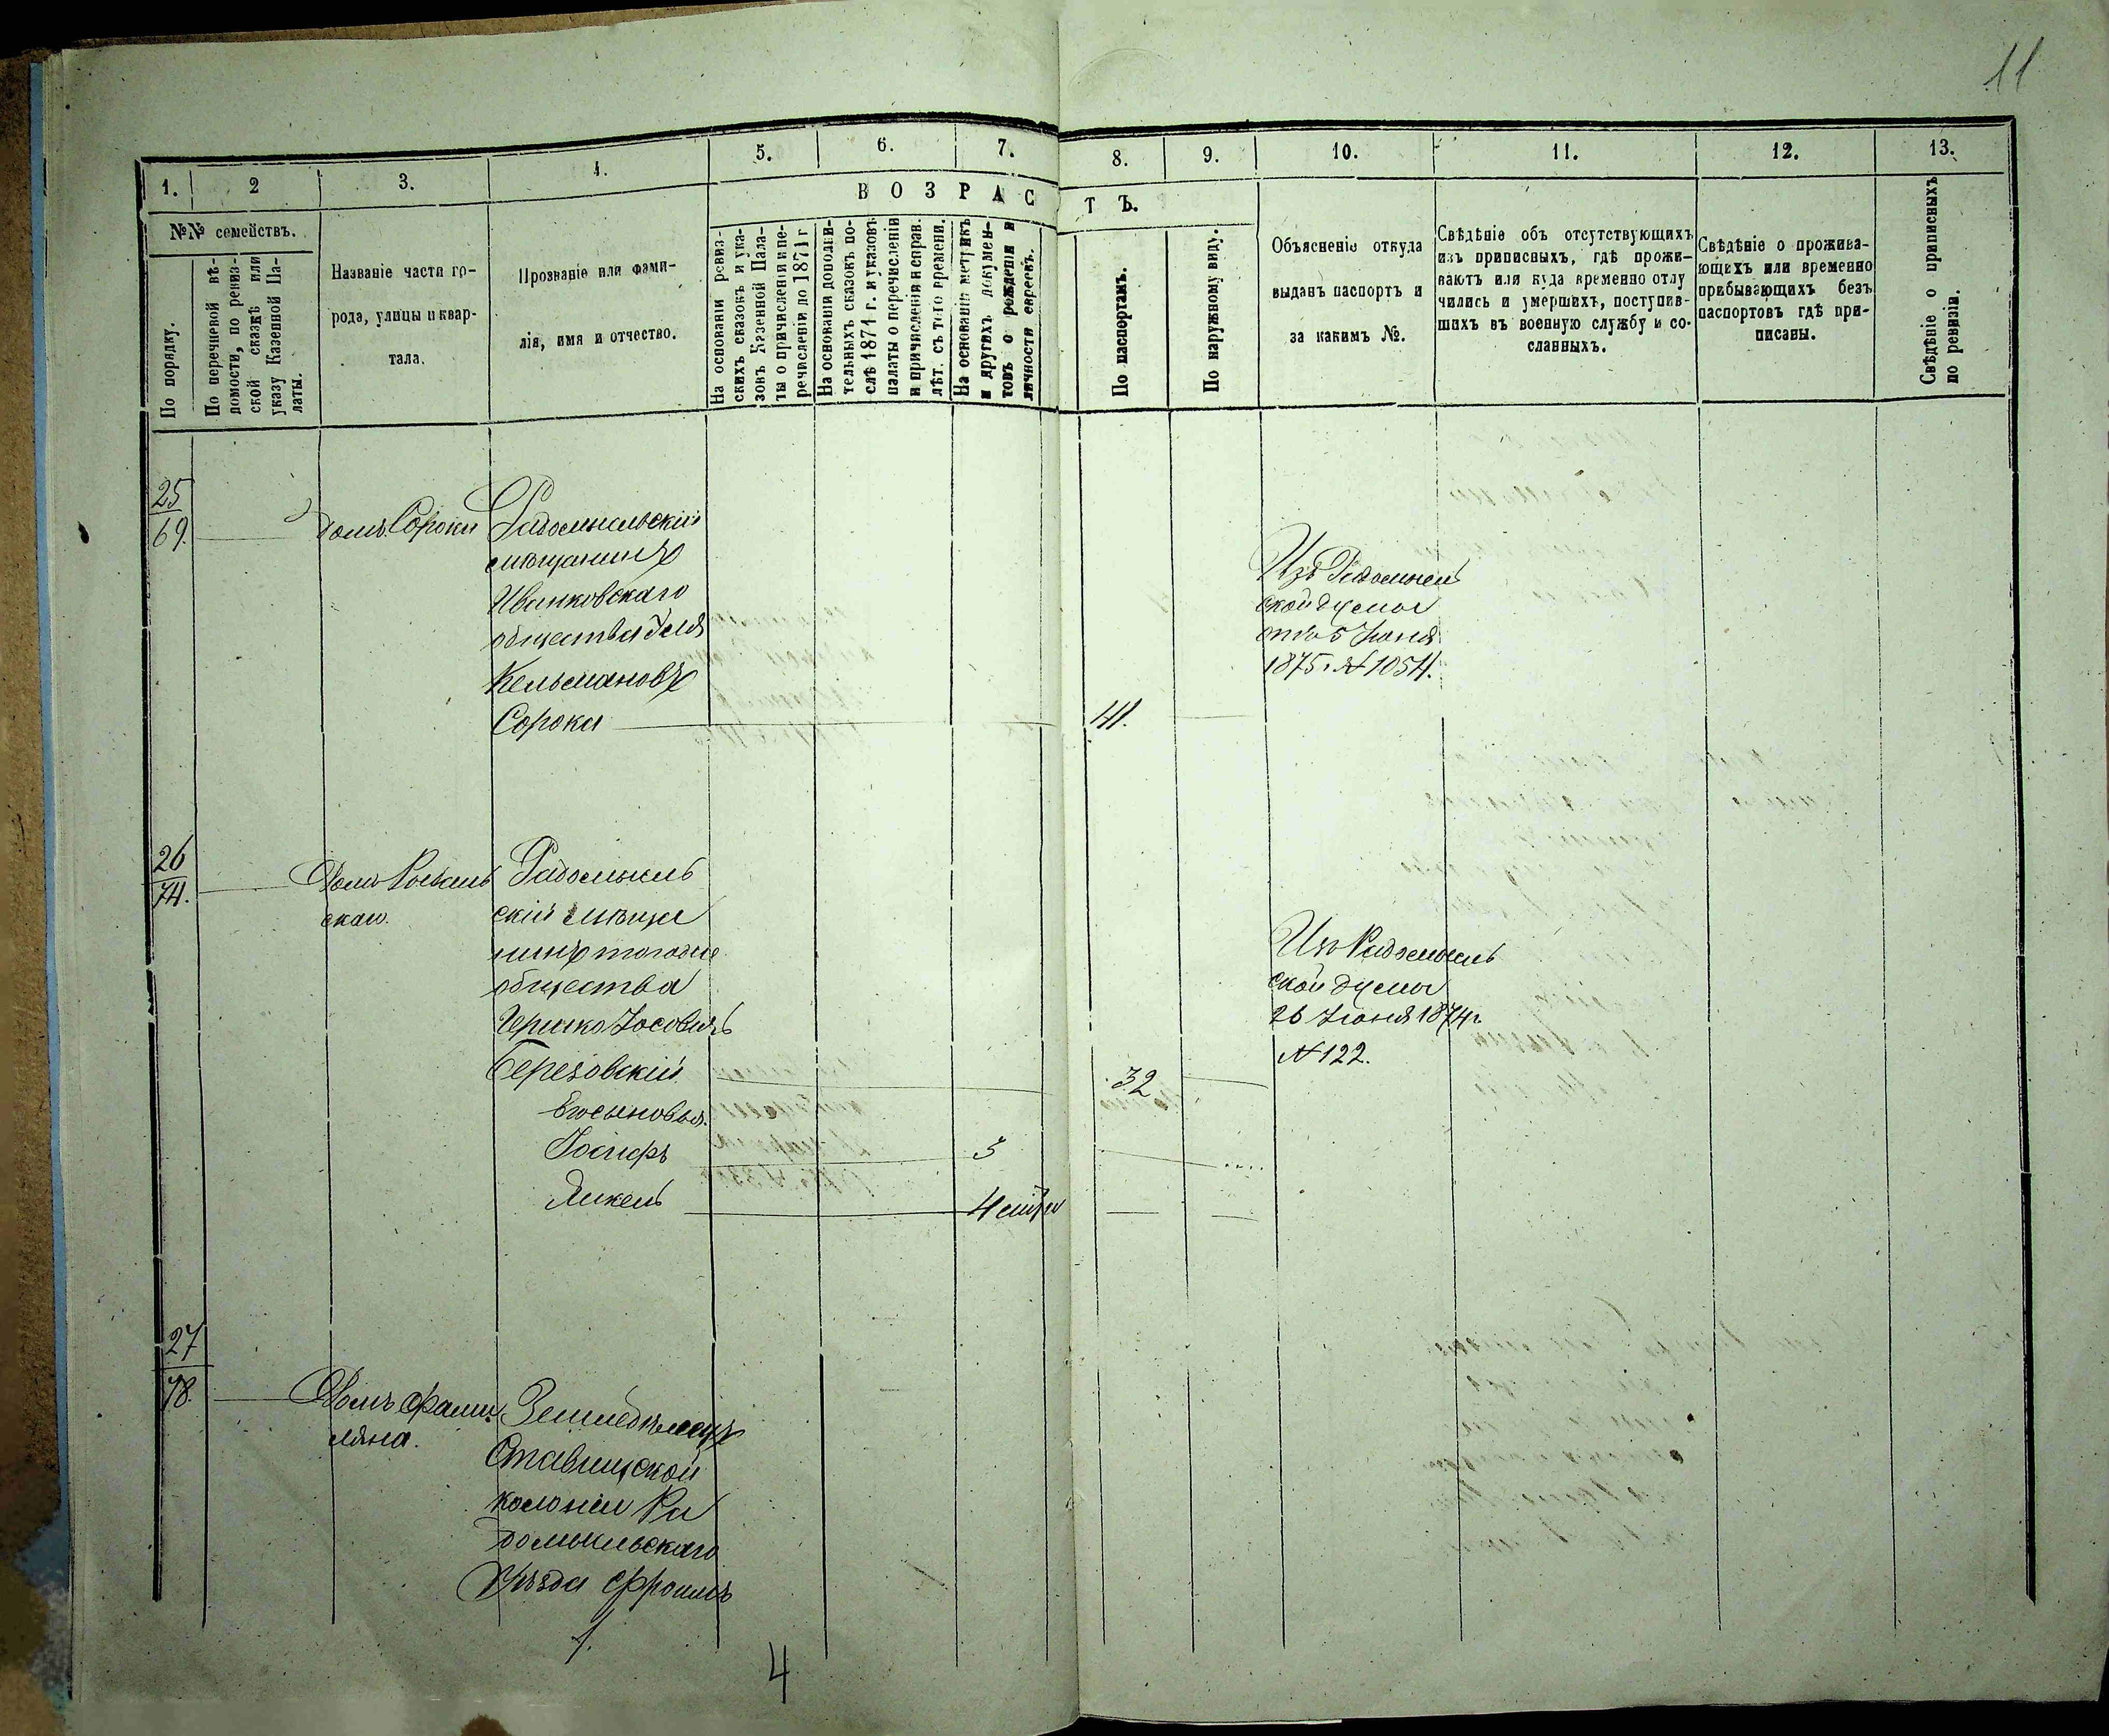 11
1. 2 3. 4. 5. 6. 7. 8. 9. 10. 11. 12. 13.
№№ семействъ.
ВОЗРАСТЪ.
По порядку.
По перечневой вѣ-
домости, по ревиз-
ской сказкѣ или
указу Казенной Па-
латы.
Названіе части го-
рода, улицы и квар-
тала.
Прозваніе или фами-
лія, имя и отчество.
На основаніи ревиз-
скихъ сказокъ и ука-
зовъ Казенной Пала-
ты о причисленіи и пе-
речисленіи до 1871 г
На основаніи дополни-
тельныхъ сказокъ по-
слѣ 1871 г. и указовъ
палаты о перечисленіи
и причисленіи и справ.
лѣт. съ того времени.
На основаніи метрикъ
и другихъ докумен-
товъ о рожденіи и
личности евреевъ.
По паспортамъ.
По наружному виду.
Объясненіе откуда
выданъ паспортъ и
за какимъ №.
Свѣдѣніе объ отсутствующихъ
изъ приписныхъ, гдѣ прожи-
ваютъ или куда временно отлу
чились и умершихъ, поступив-
шихъ въ военную службу и со-
сланныхъ.
Свѣдѣніе о прожива-
ющихъ или временно
прибывающихъ безъ
паспортовъ гдѣ при-
писаны.
Свѣдѣніе о приписныхъ
по ревизіи.
25
69.
домъ Сороки
Радомысльскій
мѣщанинъ
Иванковскаго
общества
Кельмановъ
Сорока
41.
Изъ Радомысль
ской думы
отъ 5 Іюня
1875 г. № 1054.
26
74.
Домъ
скаго.
Радомысль
скій мѣща
нинъ тогоже
общества
Гершко Іосовичъ
Березовскій
32
Изъ Радомысль
ской думы
26 Іюня 1874 г.
№ 122.
Его сыновья.
Іосифъ 3
Янкель 4
27
78.
Домъ
Земледѣлецъ
Ставищской
колоніи Ра
домысльскаго
Уѣзда Фроимъ
4